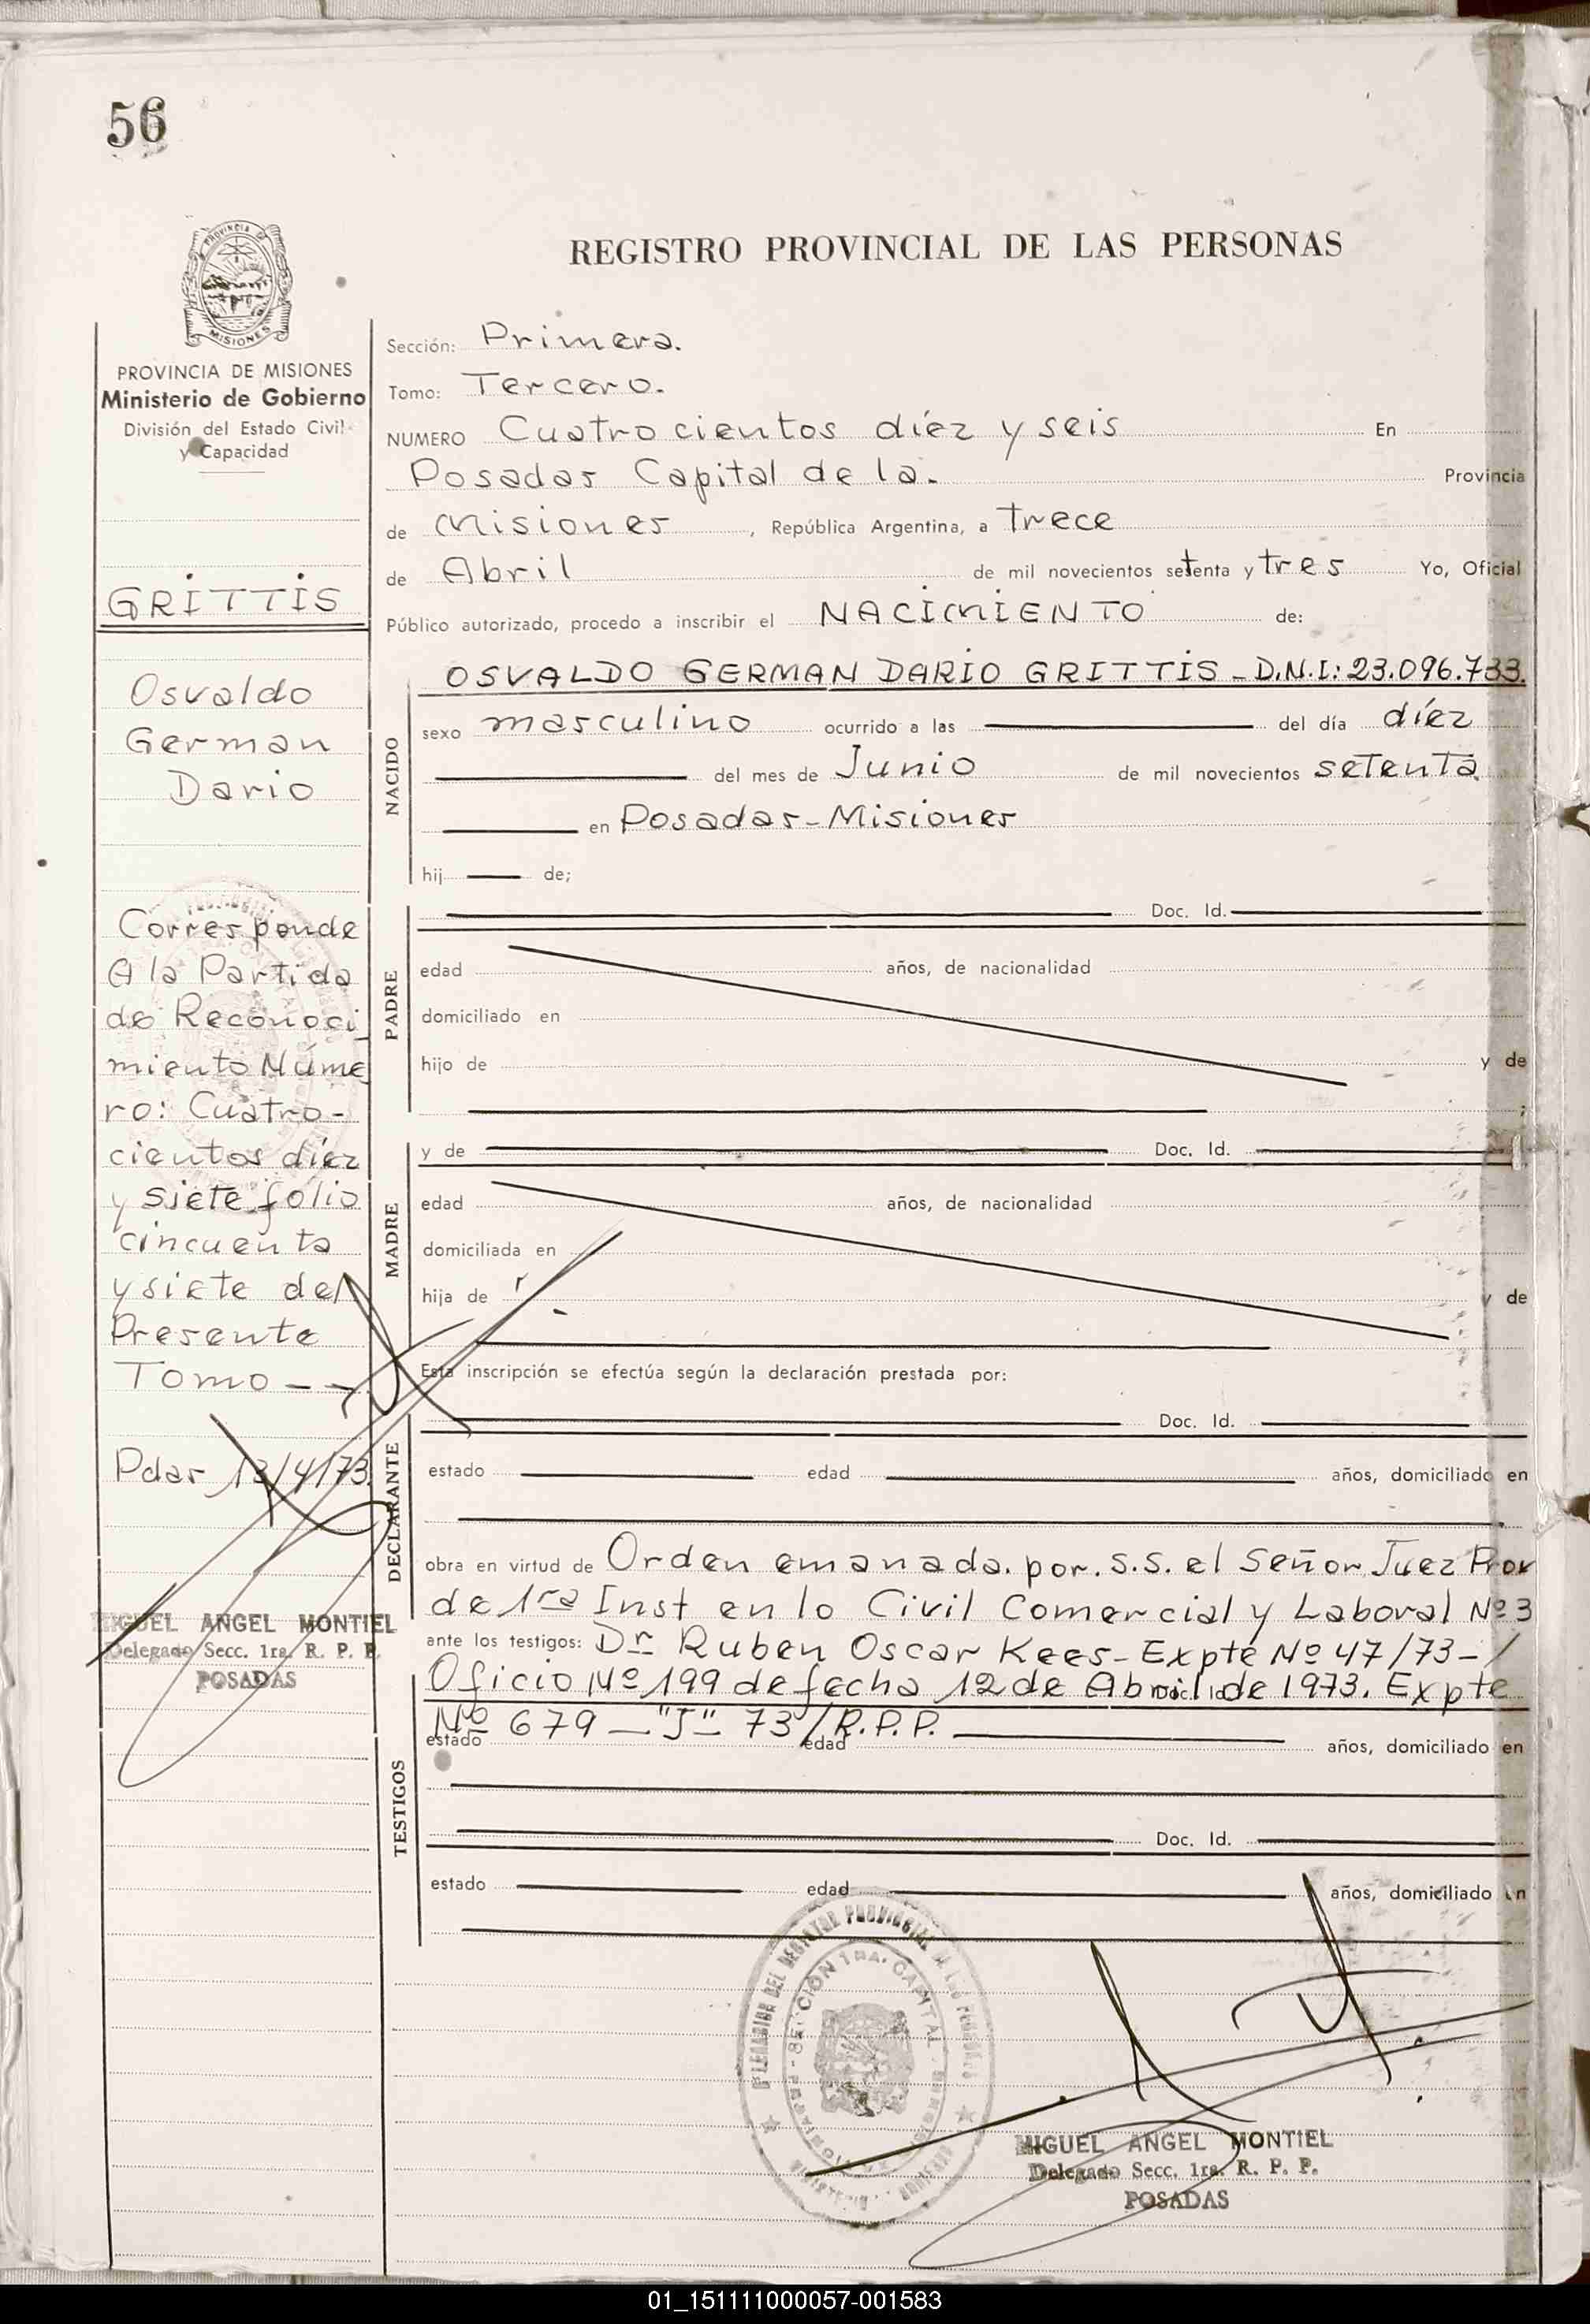 56
PROVINCIA DE
MISIONES
PROVINCIA DE MISIONES
Ministerio de Gobierno
División del Estado Civil
y Capacidad
GRITTIS
Osvaldo
German
Dario
Corresponde
A la Partida
de Reconoci
miento Núme
ro: Cuatro-
cientos diéz
y siete folio
cincuenta
y siete del
Presente
Tomo - -
Pdas 13/4/73.
MIGUEL ANGEL MONTIEL
Delegado Secc. 1ra. R. P. P.
POSADAS
REGISTRO PROVINCIAL DE LAS PERSONAS
Sección: Primera.
Tomo: Tercero.
NUMERO Cuatrocientos diéz y seis En
Posadas Capital de la. Provincia
de Misiones, República Argentina, a trece
de Abril de mil novecientos setenta y tres Yo, Oficial
Público autorizado, procedo a inscribir el NACIMIENTO de:
NACIDO
OSVALDO GERMAN DARIO GRITTIS - D.N.I: 23.096.733.
sexo masculino ocurrido a las del día diéz
del mes de Junio de mil novecientos setenta
en Posadas-Misiones
hij de;
PADRE
Doc. Id.
edad años, de nacionalidad
domiciliado en
hijo de y de
;
MADRE
y de Doc. Id.
edad años, de nacionalidad
domiciliada en
hija de y de
Esta inscripción se efectúa según la declaración prestada por:
DECLARANTE
Doc. Id.
estado edad años, domiciliado en
obra en virtud de Orden emanada. por. S.S. el Señor Juez Prov
de 1ra Inst en lo Civil Comercial y Laboral Nº 3
ante los testigos: Dr. Ruben Oscar Kees- Expte Nº 47/73-/
TESTIGOS
Oficio Nº 199 de fecha 12 de Abril de 1973. Expte
Nº 679 - "J" 73/R.P.P.
estado edad años, domiciliado en
Doc. Id.
estado edad años, domiciliado en
DEL REGISTRO PROVINCIAL DE LAS PERSONAS
SECCIÓN 1RA. CAPITAL
MIGUEL ANGEL MONTIEL
Delegado Secc. 1ra. R. P. P.
POSADAS
01_151111000057-001583